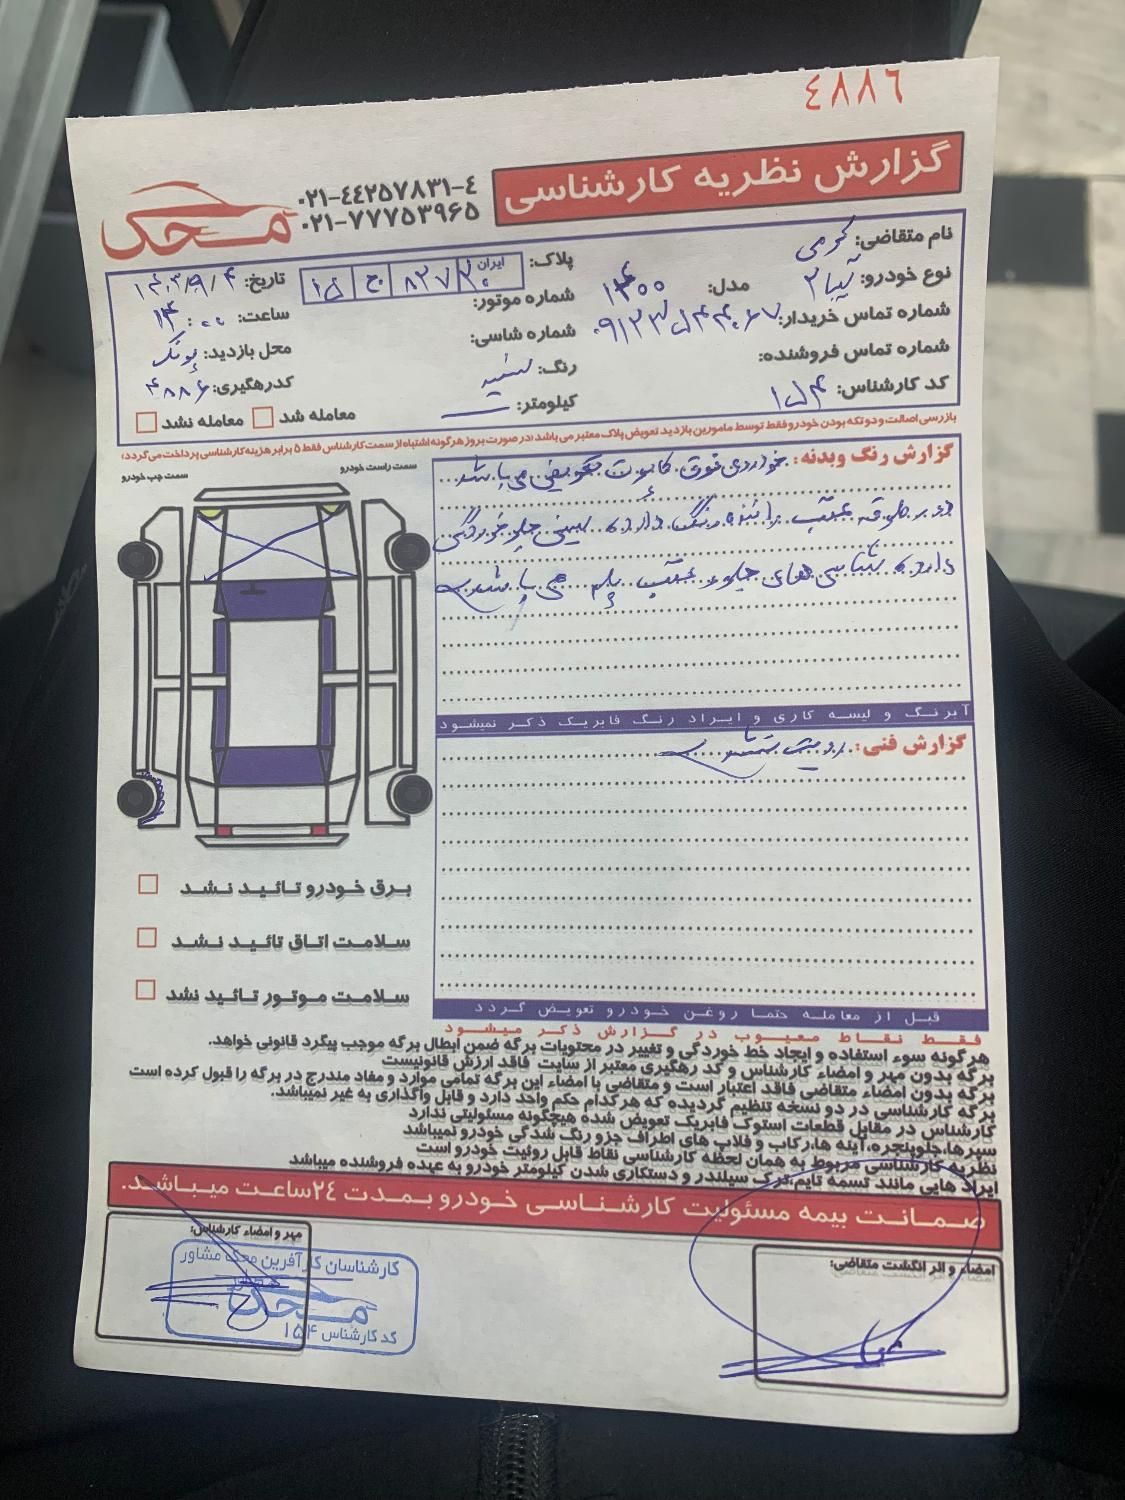 ٤٨٨٦
گزارش نظریه کارشناسی
۰۲۱-٤٤۲۵۷۸۳۱-٤
۰۲۱-۷۷۷۵۳۹۶۵
محک
نام متقاضی: کرمی
نوع خودرو: تیبا ۲
مدل: ۱۴۰۰
شماره تماس خریدار:
شماره تماس فروشنده:
کد کارشناس: ۱۵۴
پلاک: ایران ۲۰ ۸۲۷ ج ۱۵
شماره موتور:
شماره شاسی:
رنگ: سفید
کیلومتر:
تاریخ: ۱۴۰۳/۹/۴
ساعت: ۱۴:۰۰
محل بازدید: پونک
کدرهگیری: ۴۸۸۶
معامله شد
معامله نشد
بازرسی اصالت و دو تکه بودن خودرو فقط توسط مامورین بازدید تعویض پلاک معتبر می باشد، در صورت بروز هرگونه اشتباه از سمت کارشناس فقط ۵ برابر هزینه کارشناسی پرداخت می گردد،
سمت راست خودرو
سمت چپ خودرو
گزارش رنگ وبدنه: خودروی فوق کاپوت تعویض می باشد
دور گلگیر عقب راننده رنگ دارد سینی جلو خوردگی
دارد شاسی های جلو و عقب پلمپ می باشد
آبرنگ و لیسه کاری و ایراد رنگ فابریک ذکر نمیشود
گزارش فنی: رویت نشد
برق خودرو تائید نشد
سلامت اتاق تائید نشد
سلامت موتور تائید نشد
قبل از معامله حتما روغن خودرو تعویض گردد
فقط نقاط معیوب در گزارش ذکر میشود
هرگونه سوء استفاده و ایجاد خط خوردگی و تغییر در محتویات برگه ضمن ابطال برگه موجب پیگرد قانونی خواهد.
برگه بدون مهر و امضاء کارشناس و کد رهگیری معتبر از سایت فاقد ارزش قانونیست
برگه بدون امضاء متقاضی فاقد اعتبار است و متقاضی با امضاء این برگه تمامی موارد و مفاد مندرج در برگه را قبول کرده است
برگه کارشناسی در دو نسخه تنظیم گردیده که هرکدام حکم واحد دارد و قابل واگذاری به غیر نمیباشد.
کارشناس در مقابل قطعات استوک فابریک تعویض شده هیچگونه مسئولیتی ندارد
سپرها، جلوپنجره، آینه ها، رکاب و فلاپ های اطراف جزو رنگ شدگی خودرو نمیباشد
نظریه کارشناسی مربوط به همان لحظه کارشناسی نقاط قابل روئیت خودرو است
ایراد هایی مانند تسمه تایم، ترک سیلندر و دستکاری شدن کیلومتر خودرو به عهده فروشنده میباشد
ضمانت بیمه مسئولیت کارشناسی خودرو بمدت ۲٤ ساعت میباشد.
امضاء و اثر انگشت متقاضی:
مهر و امضاء کارشناس:
کارشناسان کارآفرین محک مشاور
محک
کد کارشناس ۱۵۴